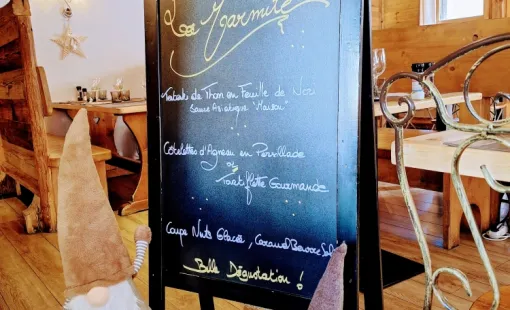 La Marmite
Tartare de Thon en Feuille de Nori
Sauce Asiatique "Maison"
Côtelettes d'Agneau en Persillade
ou
Tartiflette Gourmande
Coupe Nuts Glacée, Caramel Beurre Salé
Belle Dégustation !